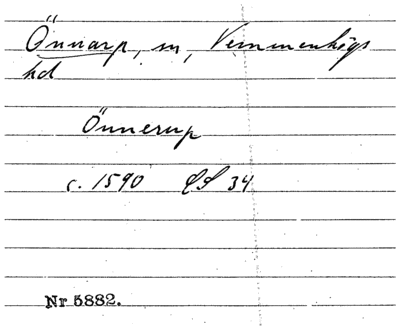 Önnarp, sn, Vemmenhögs
hd
Önnerup
c. 1590 LS 34
Nr 5882.